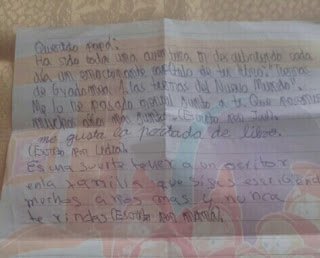 Querido papá:
Ha sido toda una aventura ir descubriendo cada
día un emocionante capítulo de tu libro: "Viajes
de A las tierras del Nuevo Mundo".
Me lo he pasado genial junto a ti. Que
muchos años más juntos. (Escrito por
me gusta la portada de libro.
(Escrito por
Es una suerte tener a un escritor
en la familia que sigas escribiendo
muchos años mas y nunca
te rindas (Escrito por mamá).